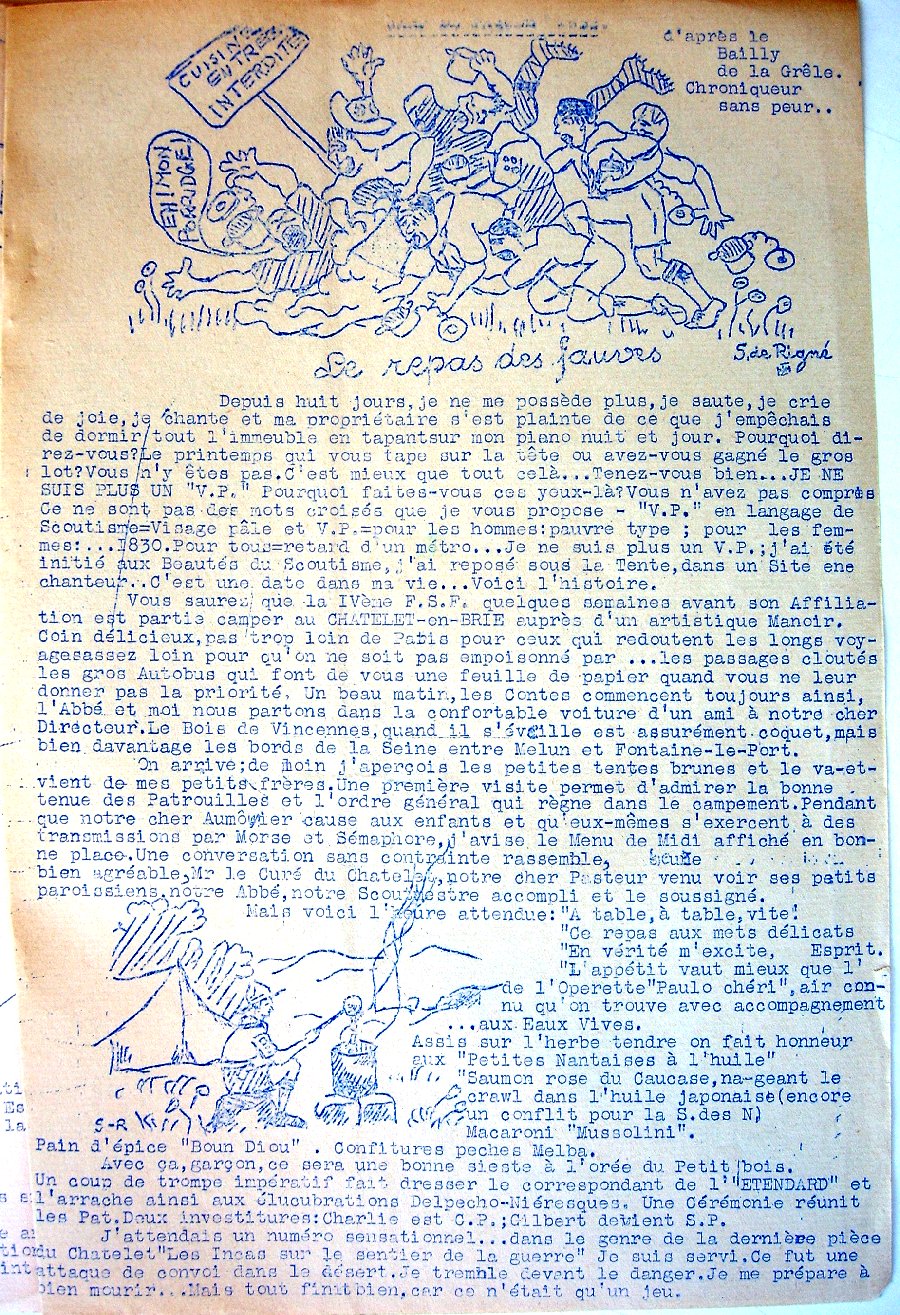 d'après le
Bailly
de la Grêle.
Chroniqueur
sans peur..
CUISINE
INTERDITE
EH! MON
PORRIDGE!
Le repas des fauves
S. de Rigné
Depuis huit jours,je ne me possède plus,je saute,je crie
de joie,je chante et ma propriétaire s'est plainte de ce que j'empêchais
de dormir tout l'immeuble en tapantsur mon piano nuit et jour. Pourquoi di-
rez-vous?Le printemps qui vous tape sur la tête ou avez-vous gagné le gros
lot?Vous n'y êtes pas.C'est mieux que tout celà...Tenez-vous bien...JE NE
SUIS PLUS UN "V.P." Pourquoi faites-vous ces yeux-là?Vous n'avez pas compris
Ce ne sont pas des mots croisés que je vous propose - "V.P." en langage de
Scoutisme=Visage pâle et V.P.=pour les hommes:pauvre type ; pour les fem-
mes:...1830.Pour tous=retard d'un métro...Je ne suis plus un V.P.;j'ai été
initié aux Beautés du Scoutisme,j'ai reposé sous la Tente,dans un Site ene
chanteur..C'est une date dans ma vie...Voici l'histoire.
Vous saurez que la IVème F.S.F. quelques semaines avant son Affilia-
tion est partie camper au CHATELET-en-BRIE auprès d'un artistique Manoir.
Coin délicieux,pas trop loin de Paris pour ceux qui redoutent les longs voy-
agesassez loin pour qu'on ne soit pas empoisonné par ...les passages cloutés
les gros Autobus qui font de vous une feuille de papier quand vous ne leur
donner pas la priorité. Un beau matin,les Contes commencent toujours ainsi,
l'Abbé et moi nous partons dans la confortable voiture d'un ami à notre cher
Directeur.Le Bois de Vincennes,quand il s'éveille est assurément coquet,mais
bien davantage les bords de la Seine entre Melun et Fontaine-le-Port.
On arrive;de moin j'aperçois les petites tentes brunes et le va-et-
vient de mes petits frères.Une première visite permet d'admirer la bonne
tenue des Patrouilles et l'ordre général qui règne dans le campement.Pendant
que notre cher Aumônier cause aux enfants et qu'eux-mêmes s'exercent à des
transmissions par Morse et Sémaphore,j'avise le Menu de Midi affiché en bon-
ne place.Une conversation sans contrainte rassemble,
bien agréable,Mr le Curé du Chatelet,notre cher Pasteur venu voir ses petits
paroissiens,notre Abbé,notre Scoutmestre accompli et le soussigné.
Mais voici l'heure attendue:"A table,à table,vite!
"Ce repas aux mets délicats
"En vérité m'excite, Esprit.
"L'appétit vaut mieux que l'
de l'Operette"Paulo chéri",air con-
nu qu'on trouve avec accompagnement
...aux Eaux Vives.
Assis sur l'herbe tendre on fait honneur
aux "Petites Nantaises à l'huile"
"Saumon rose du Caucase,na-geant le
crawl dans l'huile japonaise(encore
un conflit pour la S.des N)
Macaroni "Mussolini".
S-R
Pain d'épice "Boun Diou" . Confitures peches Melba.
Avec ça,garçon,ce sera une bonne sieste à l'orée du Petit bois.
Un coup de trompe impératif fait dresser le correspondant de l'"ETENDARD" et
l'arrache ainsi aux élucubrations Delpecho-Niéresques. Une Cérémonie réunit
les Pat.Deux investitures:Charlie est C.P.;Gilbert devient S.P.
J'attendais un numéro sensationnel...dans le genre de la dernière pièce
du Chatelet"Les Incas sur le sentier de la guerre" Je suis servi.Ce fut une
attaque de convoi dans le désert.Je tremble devant le danger.Je me prépare à
bien mourir...Mais tout finitbien,car ce n'était qu'un jeu.